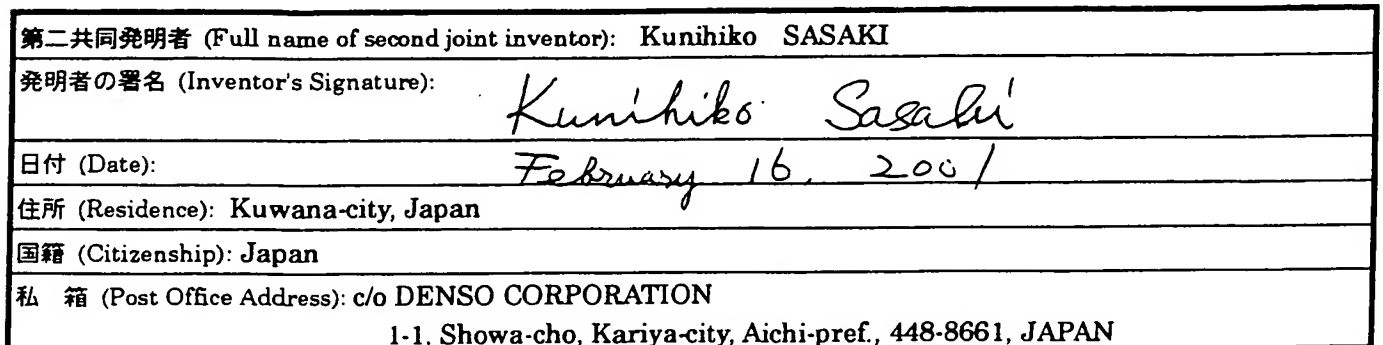 第二共同発明者 (Full name of second joint inventor): Kunihiko SASAKI
発明者の署名 (Inventor's Signature):
Kunihiko Sasaki
日付 (Date): February 16, 2001
住所 (Residence): Kuwana-city, Japan
国籍 (Citizenship): Japan
私 箱 (Post Office Address): c/o DENSO CORPORATION
1-1, Showa-cho, Kariya-city, Aichi-pref., 448-8661, JAPAN